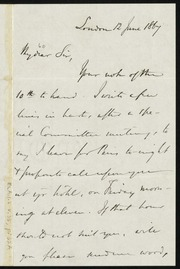 London 12 June 1867
My dear Sir,
Your note of the
10th to hand. I write a few
lines in haste, after a
Committee meeting, to
say I leave for Paris to night
& propose to call upon you
at yr hotel, on Friday morn
ing at eleven. If that hour
should not suit you, will
you please send me word,